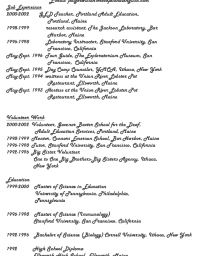 Job Experience
2000-2002 G.E.D Teacher, Portland Adult Education,
Portland, Maine
1998-1999 research assistant, The Jackson Laboratory, Bar
Harbor, Maine
1996-1998 Laboratory Instructor, Stanford University, San
Francisco, California
May-Sept. 1996 Tour Guide, The Exploratorium Museum, San
Francisco, California
May-Sept. 1995 Day Camp Counselor, YMCA, Ithaca, New York
May-Sept. 1994 waitress at the Union River Lobster Pot
Restaurant, Ellsworth, Maine
May-Sept. 1993 at the Union River Lobster Pot
Restaurant, Ellsworth, Maine
Volunteer Work
2000-2002 Volunteer, Governor Baxter School for the Deaf,
Adult Education Services, Portland, Maine
1998-1999 Master, Science Session School, Bar Harbor, Maine
1996-1998 Tutor, Stanford University, San Francisco, California
1992-1996 Big Sister Volunteer
One to One Big Brothers-Big Sisters Agency, Ithaca,
New York
Education
1999-2000 Master of Science in Education
University of Pennsylvania, Philadelphia,
Pennsylvania
1996-1998 Master of Science (Immunology)
Stanford University, San Francisco, California
1992-1996 Bachelor of Science (Biology) Cornell University, Ithaca, New York
1992 High School Diploma
Ellsworth High School, Ellsworth, Maine